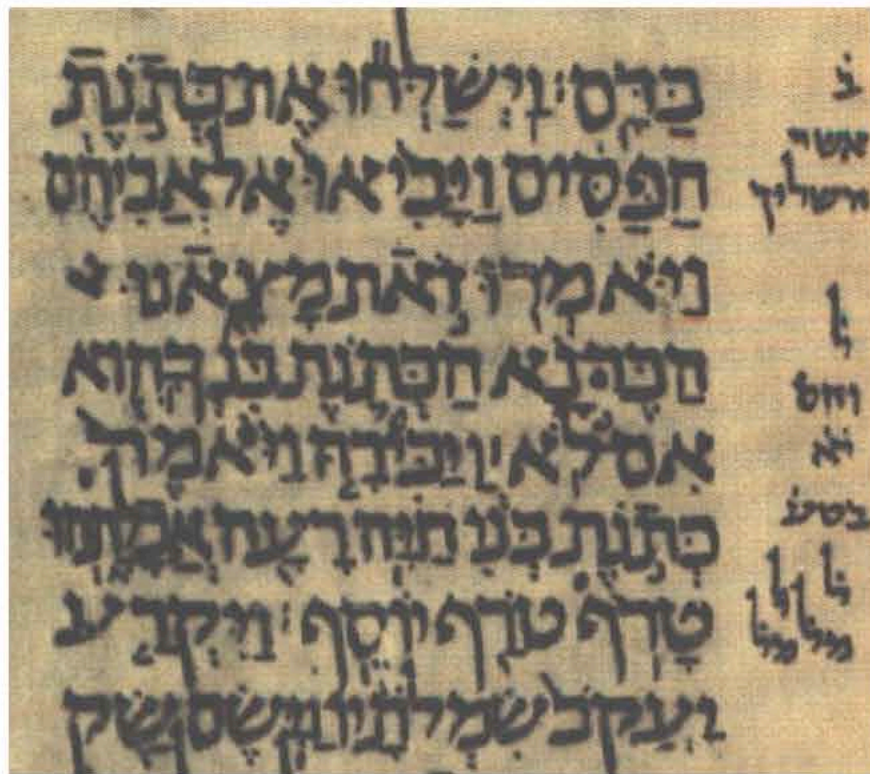 בַּדָּם׃ וַיְשַׁלְּחוּ אֶת־כְּתֹנֶת
הַפַּסִּים וַיָּבִיאוּ אֶל־אֲבִיהֶם
וַיֹּאמְרוּ זֹאת מָצָאנוּ
הַכֶּר־נָא הַכְּתֹנֶת בִּנְךָ הִוא
אִם־לֹא׃ וַיַּכִּירָהּ וַיֹּאמֶר
כְּתֹנֶת בְּנִי חַיָּה רָעָה אֲכָלָתְהוּ
טָרֹף טֹרַף יוֹסֵף׃ וַיִּקְרַע
יַעֲקֹב שִׂמְלֹתָיו וַיָּשֶׂם שַׂק
ב̇
ל̇
וחס
בטע